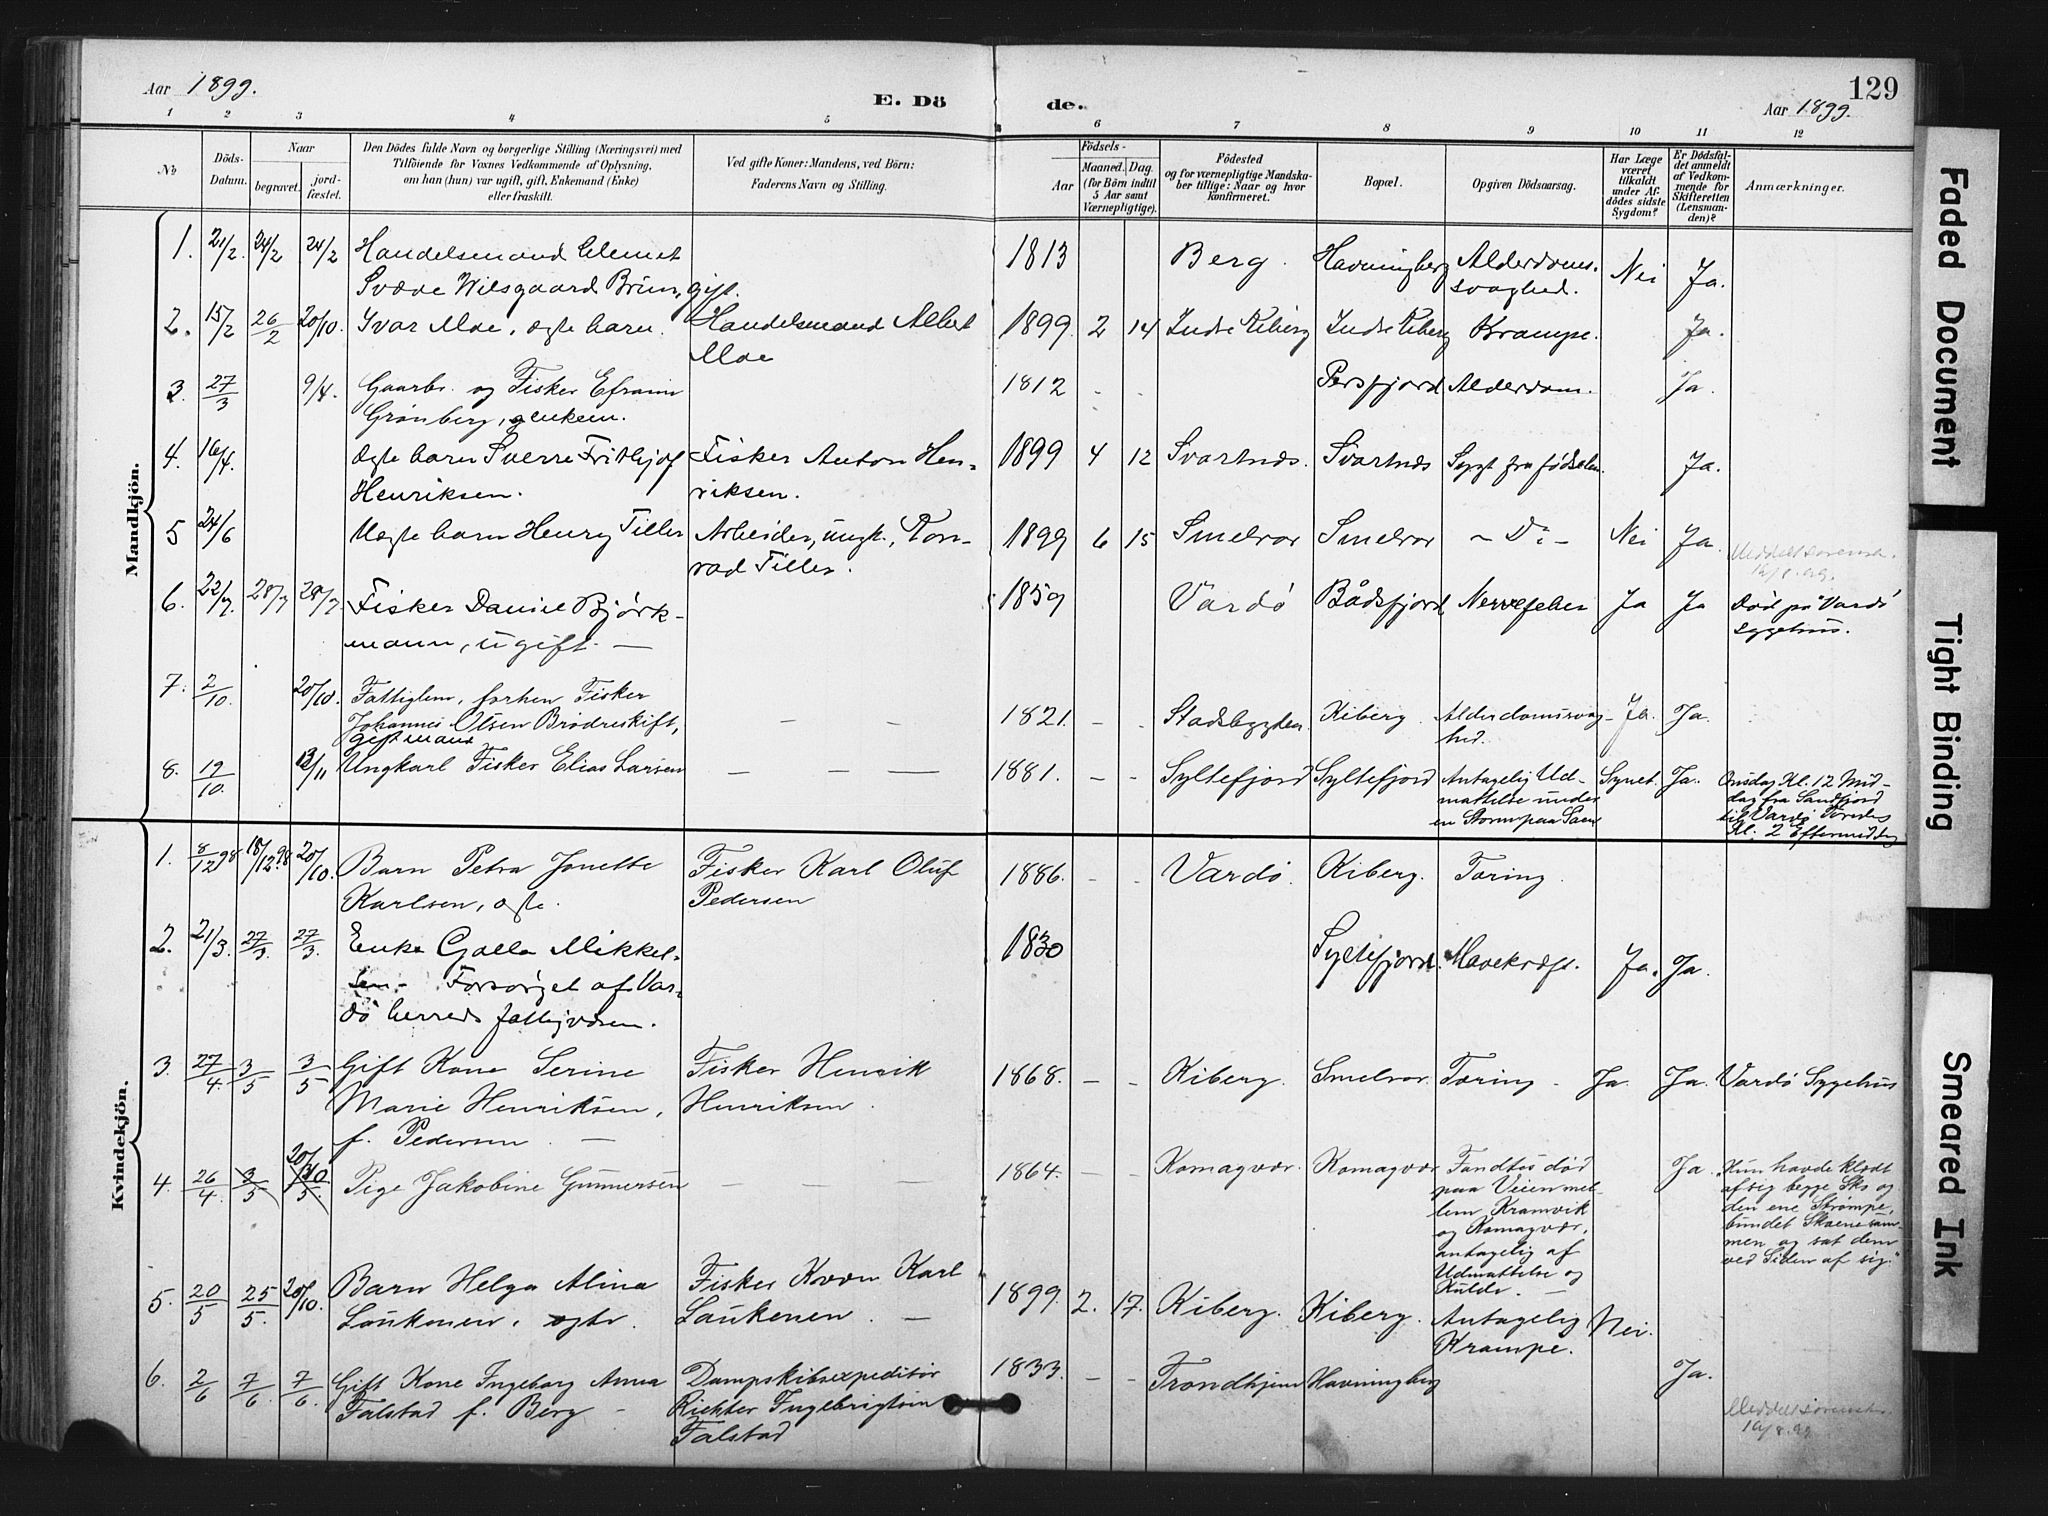 Aar 1899.
E. Döde.
129
Aar 1899.
1 2 3 4 5 6 7 8 9 10 11 12
No
Döds-Datum.
Naar
begravet.
jord-fæstet.
Den Dödes fulde Navn og borgerlige Stilling (Næringsvei) med
Tilföiende for Voxnes Vedkommende af Oplysning,
om han (hun) var ugift, gift, Enkemand (Enke)
eller fraskilt.
Ved gifte Koner: Mandens, ved Börn:
Faderens Navn og Stilling.
Födsels-
Aar
Maaned. Dag.
(for Börn indtil
5 Aar samt
Værnepligtige).
Födested
og for værnepligtige Mandska-
ber tillige: Naar og hvor
konfirmeret.
Bopæl.
Opgiven Dödsaarsag.
Har Læge
været
tilkaldt
under Af-
dödes sidste
Sygdom?
Er Dödsfal-
det anmeldt
af Vedkom-
mende for
Skifteretten
(Lensman-
den)?
Anmærkninger.
Mandkjön.
1. 21/2. 24/2 24/2 Handelsmand Clemet 1813 Berg. Havningberg Alderdoms- Nei Ja.
Svæve Wilsgaard Brun, gift. svaghed.
2. 15/2 26/2 20/10. Ivar Moe, ægte barn. Handelsmand Albert 1899 2 14 Indre Kiberg Indre Kiberg Krampe. Ja.
Moe
3. 27/3 9/4. Gaarbr. og Fisker Efraim 1812 - - Persfjord Alderdom. Ja.
Grønberg, enkem.
4. 16/4. Ægte barn Sverre Frithjof Fisker Anton Hen- 1899 4 12 Svartnæs. Svartnæs Sygt fra fødselen. Ja.
Henriksen. riksen.
5 24/6 Uægte barn Henry Tiller Arbeider, ungk., Kon- 1899 6 15 Smelror Smelror - Do - Nei Ja.
rad Tiller. 19/8.99.
6. 22/7. 28/7 28/7 Fisker Daniel Bjørk- 1859 Vardø Bådsfjord Nervefeber Ja Ja Død på Vardø
mann, ugift. — sygehus.
7. 2/10. 20/10. Fattiglem, forhen Fisker
Johannes Olsen Brødreskift, — — 1821. - - Stadsbygden Kiberg. Alderdomssvag- Ja. Ja.
gift mand hed.
8. 19/10. 12/11 Ungkarl Fisker Elias Larsen — — — 1881. - - Syltefjord Syltefjord Antagelig Ud- Synet. Ja. Onsdag Kl. 12 Mid-
mattelse under dag fra Sandfjord
en Storm paa Søen til Vardø
Kl. 2 Eftermiddag
Kvindekjön.
1. 8/12 98 18/12.98 20/10. Barn Petra Jonette Fisker Karl Oluf 1886. - - Vardø. Kiberg. Tæring.
Karlsen, ægte. Pedersen
2. 21/3. 27/3. 27/3. Enke Gjalla Mikkel- 1830 Syltefjord. Mavekræft. Ja. Ja.
sen - Forsørget af Var-
dø herreds fattigvæsen.
3. 27/4. 3/5 3/5 Gift Kone Serine Fisker Henrik 1868. - - Kiberg. Smelror. Tæring - Ja. Ja. Vardø Sygehus
Marie Henriksen, Henriksen.
f. Pedersen. —
4. 26/4. 3/5 20/10 Pige Jakobine Gunnersen — — — 1864. - - Komagvær. Komagvær Fandtes død Ja. "Hun havde klædt
paa Veien mel- af sig begge Sko og
lem Kramvik den ene Strømpe,
og Komagvær, bundet Skoene sam-
antagelig af men og sat dem
Udmattelse og ved Siden af sig."
Kulde. —
5. 20/5 25/5. 20/10. Barn Helga Alina Fisker Kvæn Karl 1899. 2. 17. Kiberg. Kiberg. Antagelig Nei.
Laukonen. ægte. Laukonen. — Krampe.
6. 2/6 7/6. 7/6 Gift Kone Ingeborg Anna Dampskibsexpeditør 1833. - - Trondhjem Havningberg Ja.
Falstad f. Berg - Richter Ingebrigtsen
Falstad 19/8.99
Faded Document
Tight Binding
Smeared Ink